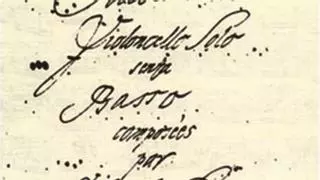 Violoncello Solo
senza
Basso
composées
par